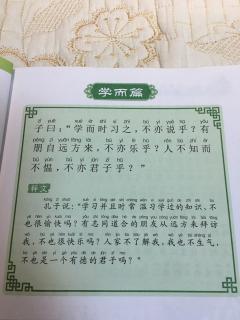 学而篇
zǐ yuē xué ér shí xí zhī bú yì yuè hū yǒu
子曰：“学而时习之，不亦说乎？有
péng zì yuǎn fāng lái bú yì lè hū rén bù zhī ér
朋自远方来，不亦乐乎？人不知而
bú yùn bú yì jūn zǐ hū
不愠，不亦君子乎？”
释文
孔子说：“学习并且时常温习学过的知识，不
也很愉快吗？有志同道合的朋友从远方来拜访
我，不也很快乐吗？人家不了解我，我也不生气，
不也是一个有德的君子吗？”